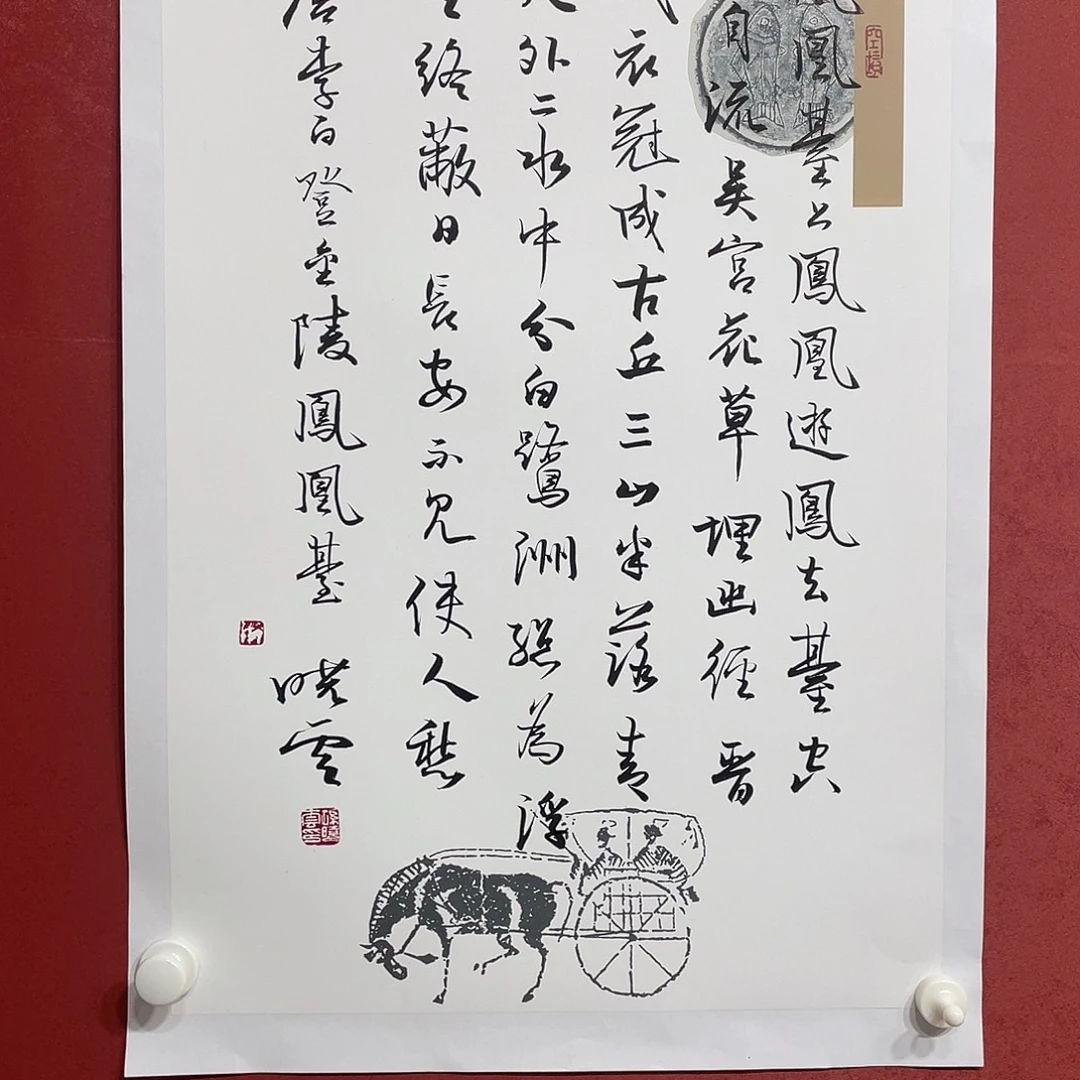 凰臺上鳳凰遊鳳去臺空
自流吳宮花草埋幽徑晉
衣冠成古丘三山半落青
外二水中分白鷺洲總為浮
終蔽日長安不見使人愁
李白登金陵鳳凰臺
曉雲
孫曉雲印